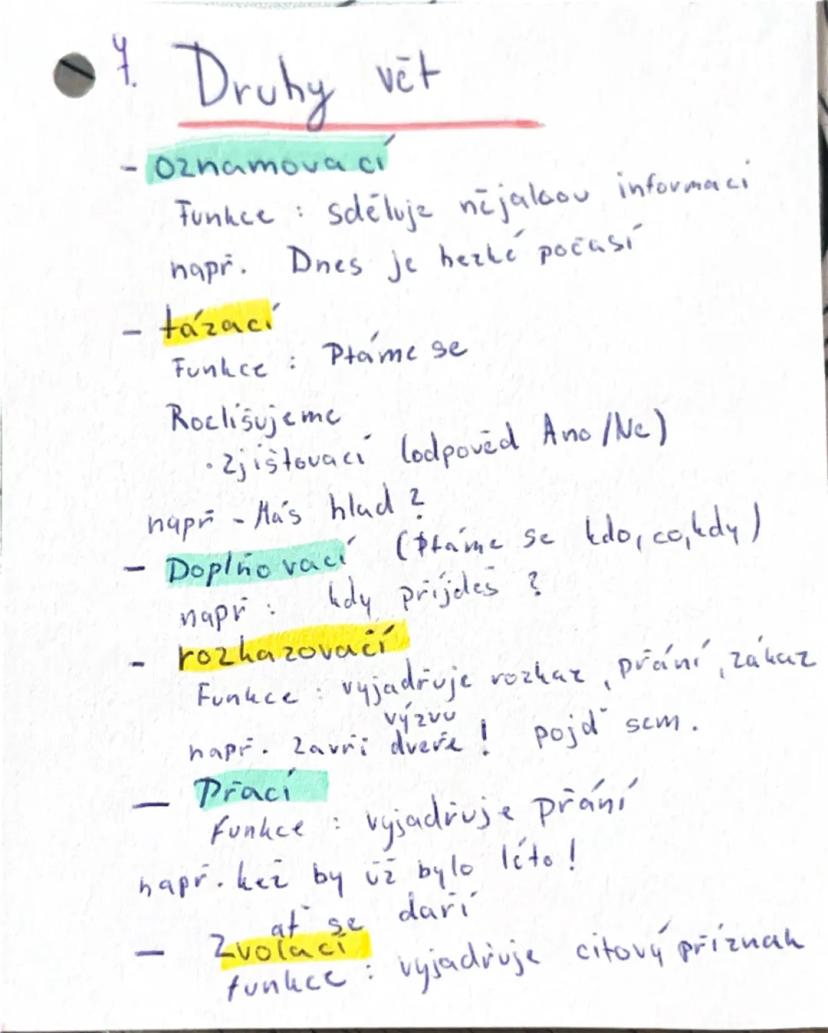 7. Druhy vět
- oznamovací
Funkce : sděluje nějakou informaci
např. Dnes je hezké počasí
- tázací
Funkce : Ptáme se
Rozlišujeme
· zjišťovací (odpověd Ano/Ne)
např - Máš hlad ?
- Doplňovací (Ptáme se kdo, co, kdy)
např : kdy přijdeš ?
- rozkazovačí
Funkce : vyjadřuje rozkaz, přání, zákaz
výzvu
např. Zavři dveře ! pojď sem.
- Přací
funkce : vyjadřuje přání
např. kež by už bylo léto !
ať se daří
- Zvolací
funkce : vyjadřuje citový příznak